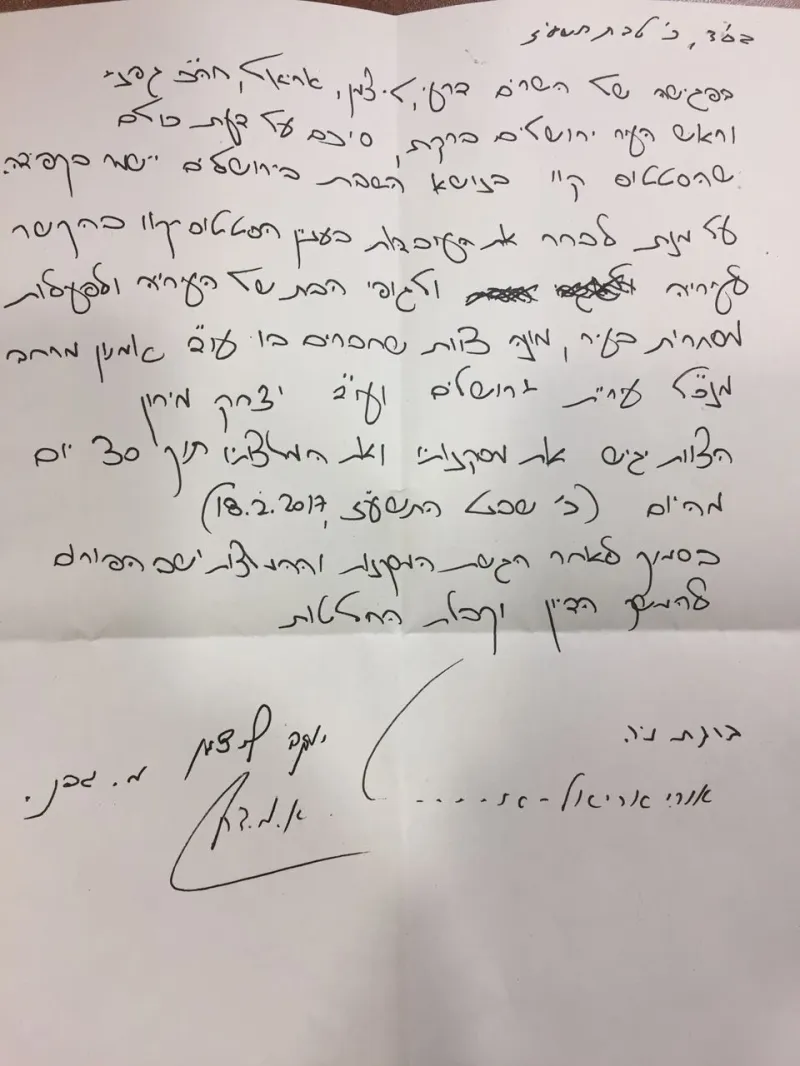 בס״ד, כ׳ טבת תשע״ז
בפגישה של השרים דרעי, ליצמן, אריאל, חה״כ גפני
וראש העיר ירושלים ברקת, סיכם על דעת כולם
שהסטטוס קוו בנושא השבת בירושלים יישמר בקפידה.
על מנת לברר את העובדות בענין הסטטוס קוו בהקשר
לעיריה ולגופי הבת של העיריה ולפעילות
מסחרית בעיר, מונה צוות שחברים בו עו״ב אמנון מרחב
מנכ״ל עירית ירושלים ועו״ב יצחק מירון
הצוות יגיש את מסקנותיו ואת המלצותיו תוך 30 יום
מהיום (כ׳ שבט התשע״ז, 18.2.2017)
בסמוך לאחר הגשת המסקנות וההמלצות ישב הפורום
להמשך הדיון וקבלת החלטות
ברקת ניר.
יעקב ליצמן
מ. גפני.
אורי אריאל
א.מ.ד